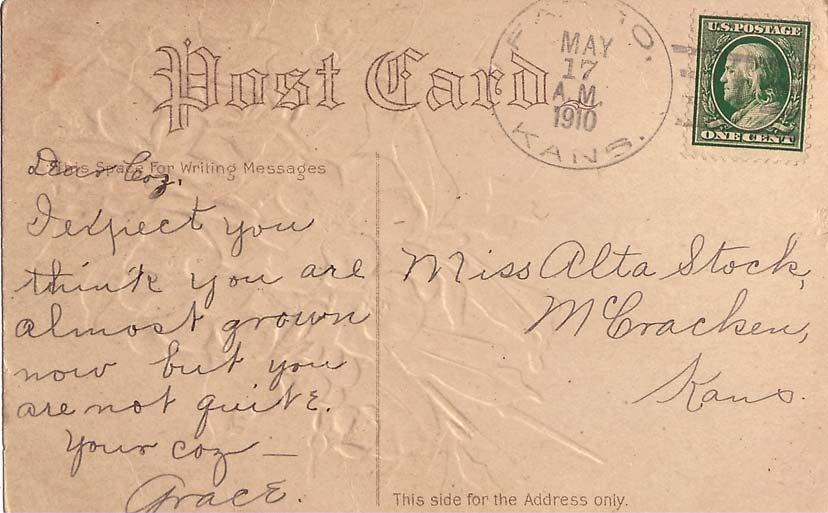 Post Card
MAY
17
A.M.
1910
KANS.
U.S. POSTAGE
ONE CENT
This Space For Writing Messages
Dear Coz,
I expect you
think you are
almost grown
now but you
are not quite.
Your coz —
Grace.
Miss Alta Stock,
McCracken,
Kans.
This side for the Address only.